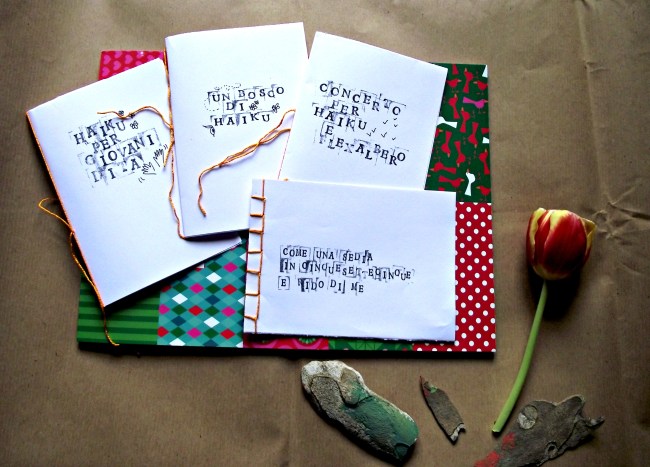 HAIKU
PER
GIOVANI
DITA
UN BOSCO
DI
HAIKU
CONCERTO
PER
HAIKU
E
COME UNA SEDIA
IN CINQUESETTECINQUE
E RIDO DI ME